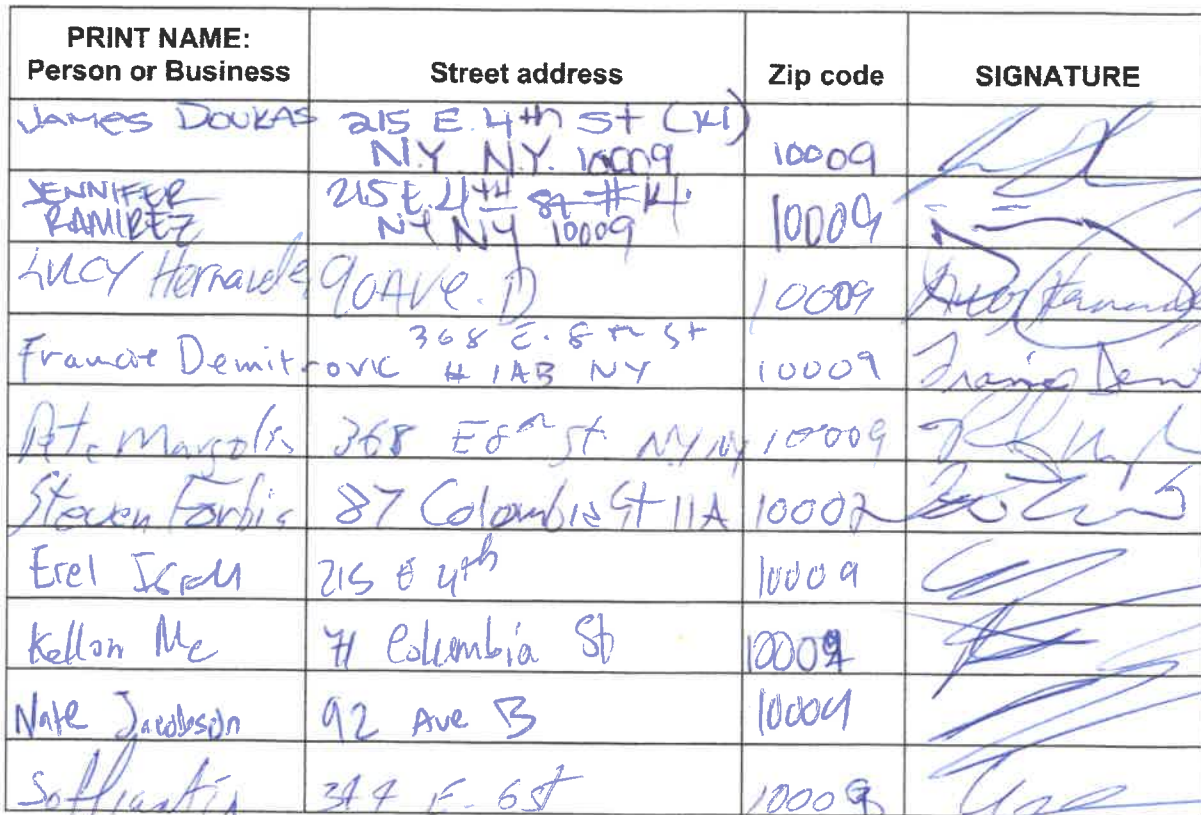 PRINT NAME:
Person or Business
Street address
Zip code
SIGNATURE
JAMES DOUKAS
215 E. 4th St (K1)
N.Y. N.Y. 10009
10009
JENNIFER
RAMIREZ
215 E. 4TH St #
NY NY 10009
10009
LUCY
90 AVE. D
10009
Demitrovic
368 E. 8th St
# 1AB NY
10009
Pete Margolis
368 E 8th St NY NY
10009
Steven Forbis
87 Colombia St 11A
10002
Erel
215 E 4th
10009
Mc
71 Columbia St
Nate Jacobson
92 Ave B
10009
E. 6 St